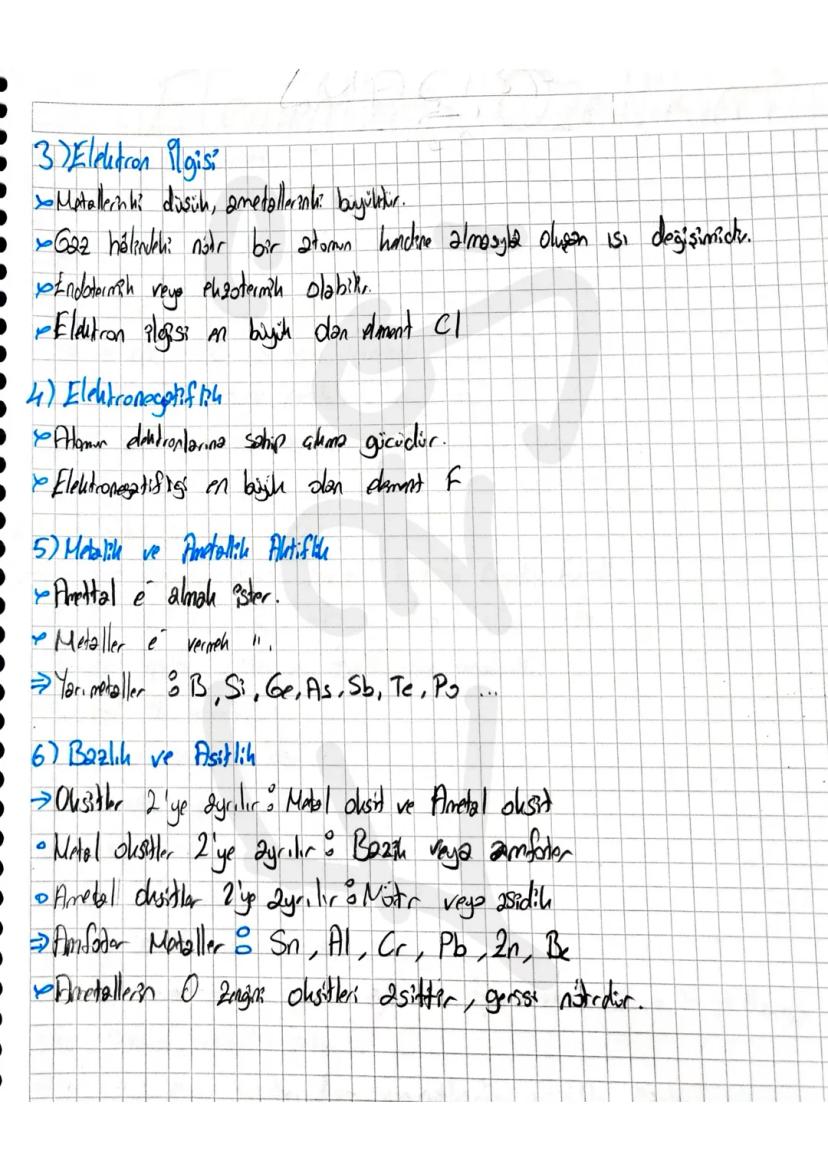 3) Elektron İlgisi
Metallerinki düşük, ametallerinki büyüktür.
Gaz hâlindeki nötr bir atomun kendine almasıyla oluşan ısı değişimidir.
Endotermik veya ekzotermik olabilir.
Elektron ilgisi en büyük olan element Cl
4) Elektronegatiflik
Atomun elektronlarına sahip çıkma gücüdür.
Elektronegatifliği en büyük olan element F
5) Metalik ve Ametallik Aktiflik
Amettal e⁻ almak ister.
Metaller e⁻ vermek ".
⇒ Yarımetaller : B, Si, Ge, As, Sb, Te, Po ...
6) Bazlık ve Asitlik
→ Oksitler 2'ye ayrılır : Metal oksit ve Ametal oksit
• Metal oksitler 2'ye ayrılır : Bazik veya amfoter
• Ametal oksitler 2'ye ayrılır : Nötr veya asidik
⇒ Amfoter Metaller : Sn, Al, Cr, Pb, Zn, Be
Ametallerin O zengini oksitleri asittir, gerisi nötrdür.